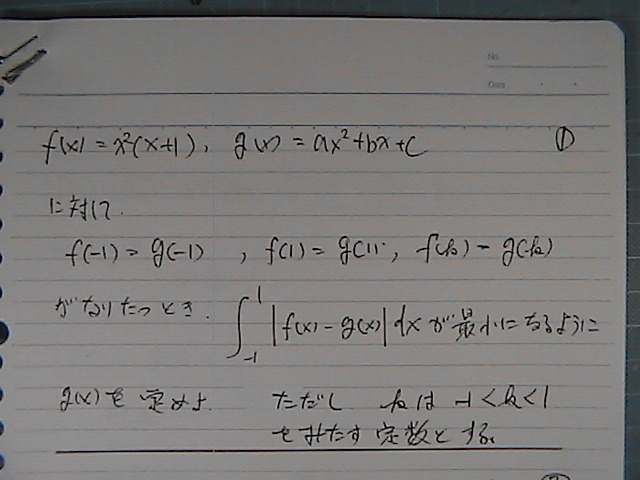 No.
Date
f(x) = x²(x+1), g(x) = ax²+bx+c ①
に対して
f(-1) = g(-1) , f(1) = g(1), f(k) = g(k)
がなりたつとき. ∫₋₁¹ |f(x) - g(x)| dx が最小になるように
g(x)を定めよ ただし kは -1<k<1
をみたす定数とする。